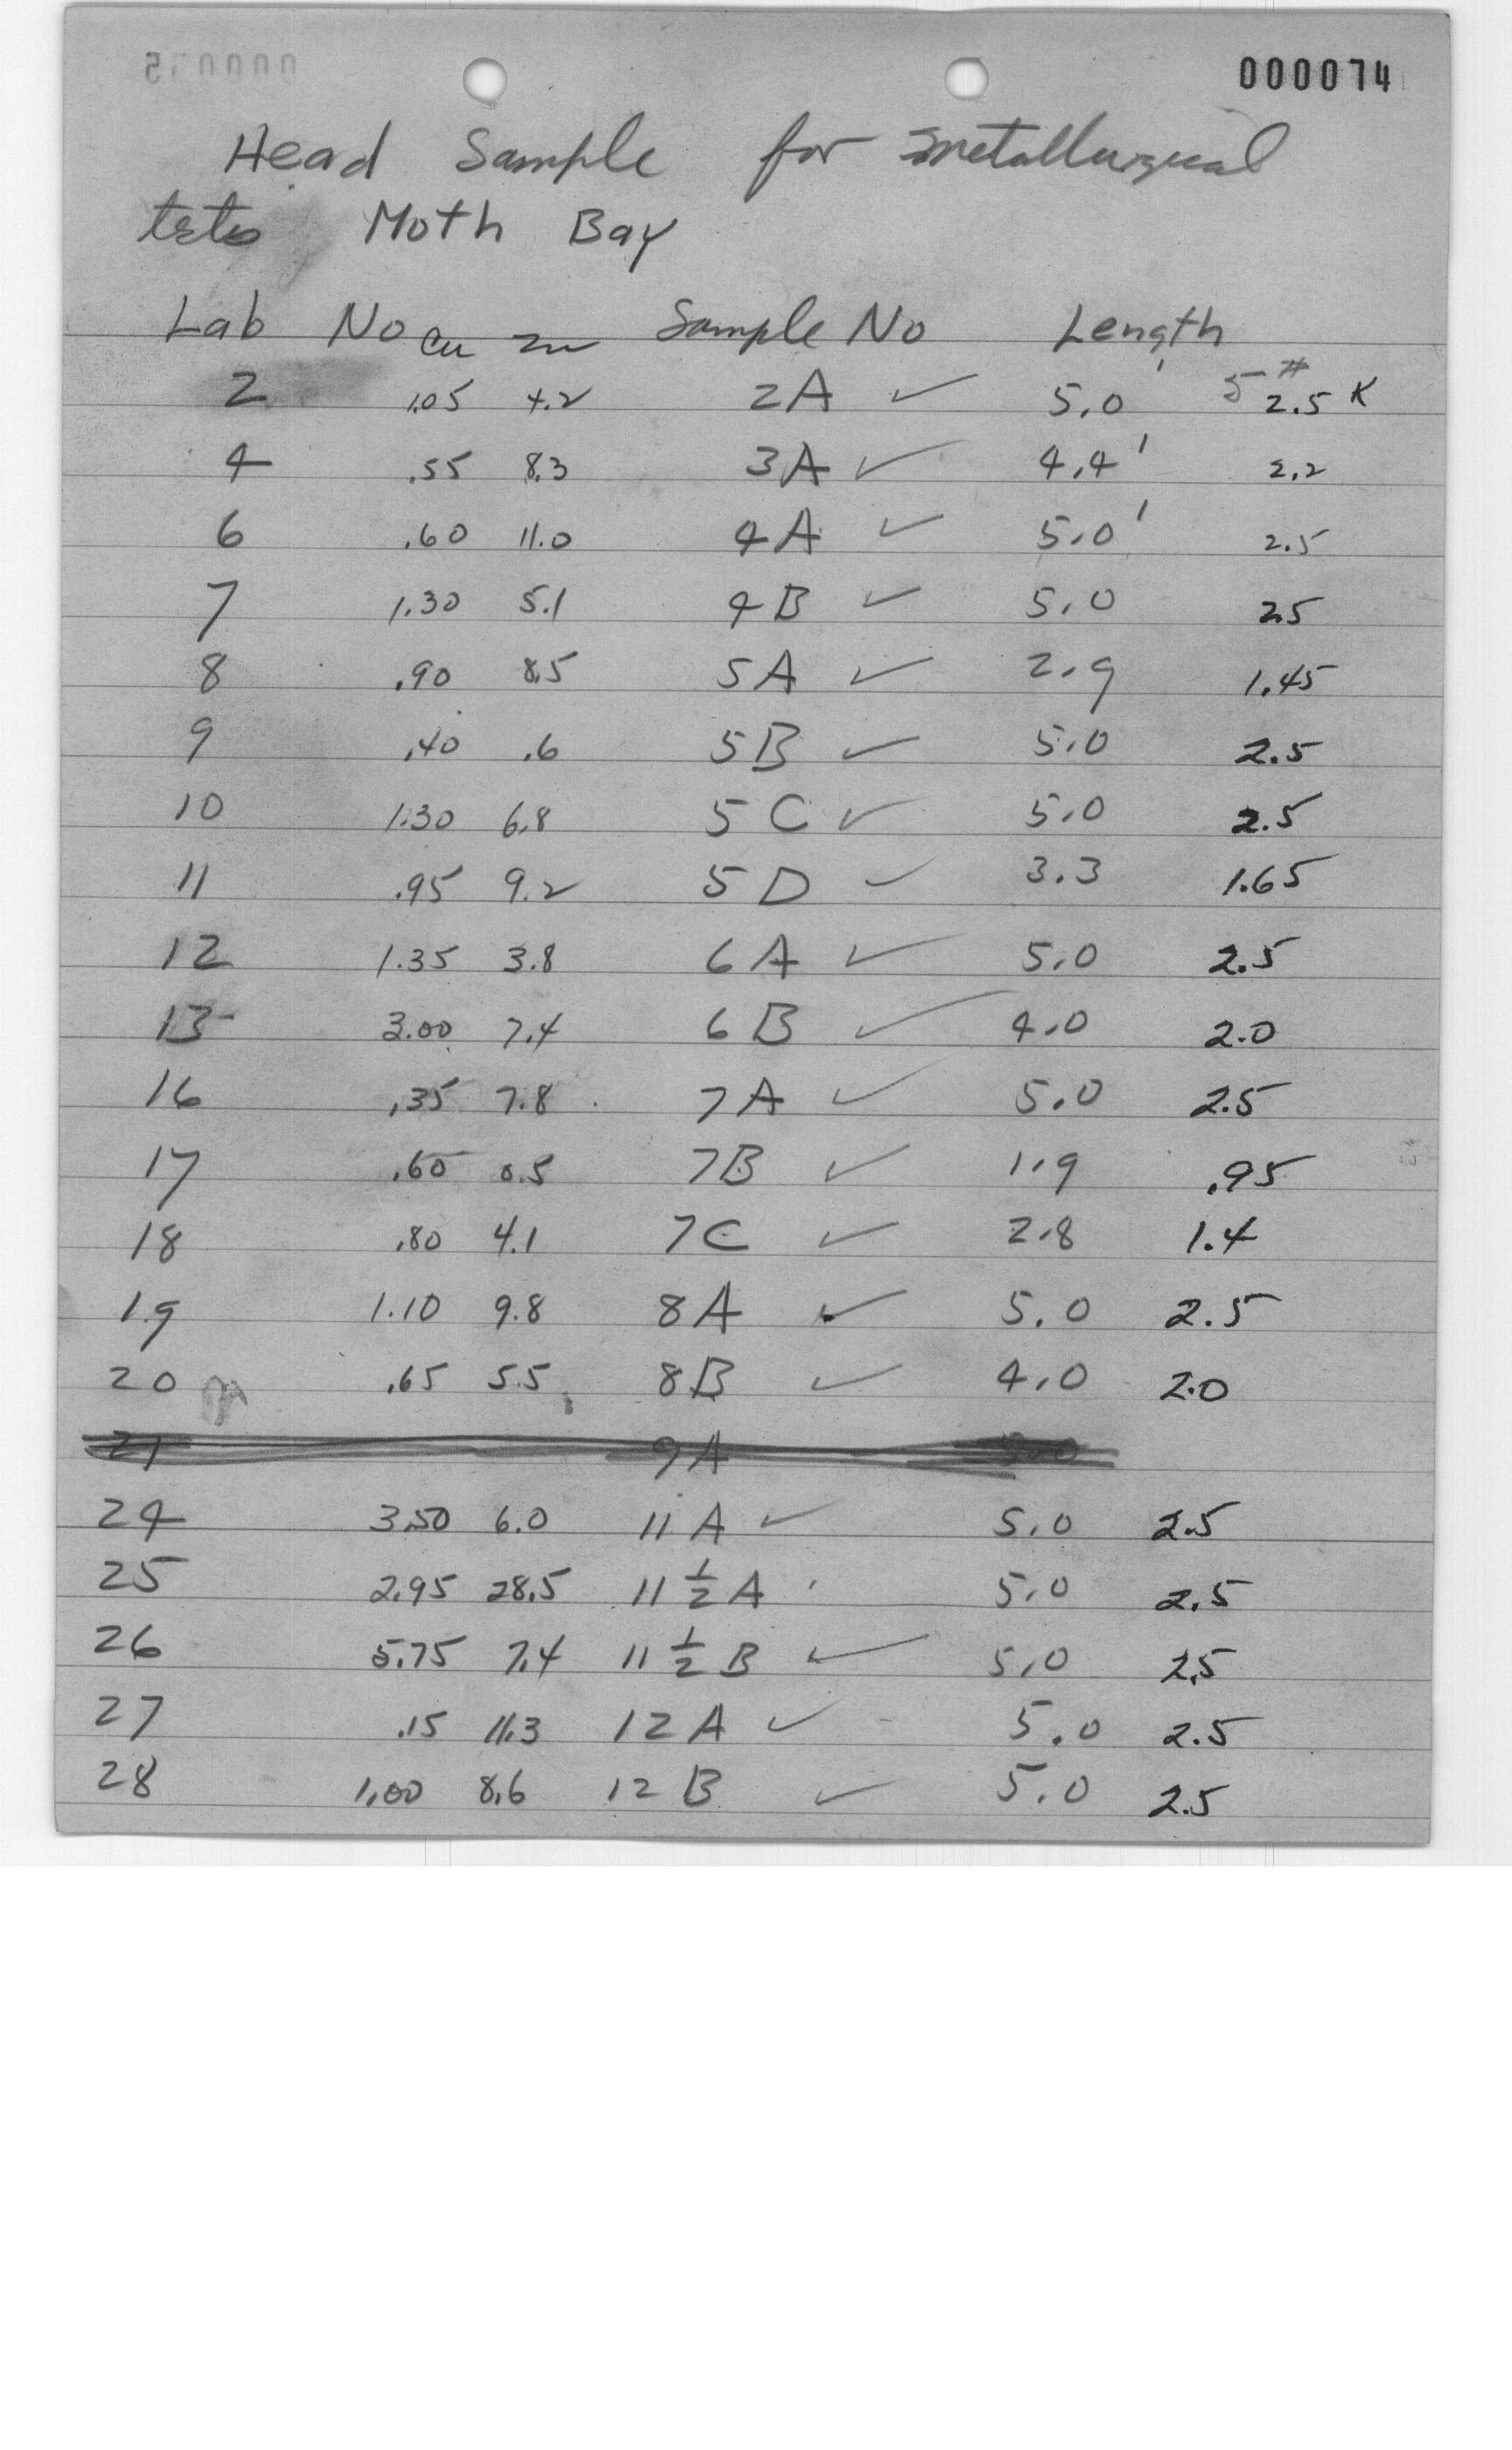 000074
Head Sample for metallurgical
tests Moth Bay
Lab No Cu Zn Sample No Length
2 1.05 4.2 2A ✓ 5.0' 5# 2.5 K
4 .55 8.3 3A ✓ 4.4' 2.2
6 .60 11.0 4A ✓ 5.0' 2.5
7 1.30 5.1 4B ✓ 5.0 2.5
8 .90 8.5 5A ✓ 2.9 1.45
9 .40 .6 5B ✓ 5.0 2.5
10 1.30 6.8 5C ✓ 5.0 2.5
11 .95 9.2 5D ✓ 3.3 1.65
12 1.35 3.8 6A ✓ 5.0 2.5
13 3.00 7.4 6B ✓ 4.0 2.0
16 .35 7.8 7A ✓ 5.0 2.5
17 .60 0.5 7B ✓ 1.9 .95
18 .80 4.1 7C ✓ 2.8 1.4
19 1.10 9.8 8A ✓ 5.0 2.5
20 .65 5.5 8B ✓ 4.0 2.0
21 9A 5.0
24 3.50 6.0 11A ✓ 5.0 2.5
25 2.95 28.5 11½A 5.0 2.5
26 5.75 7.4 11½B ✓ 5.0 2.5
27 .15 11.3 12A ✓ 5.0 2.5
28 1.00 8.6 12B ✓ 5.0 2.5